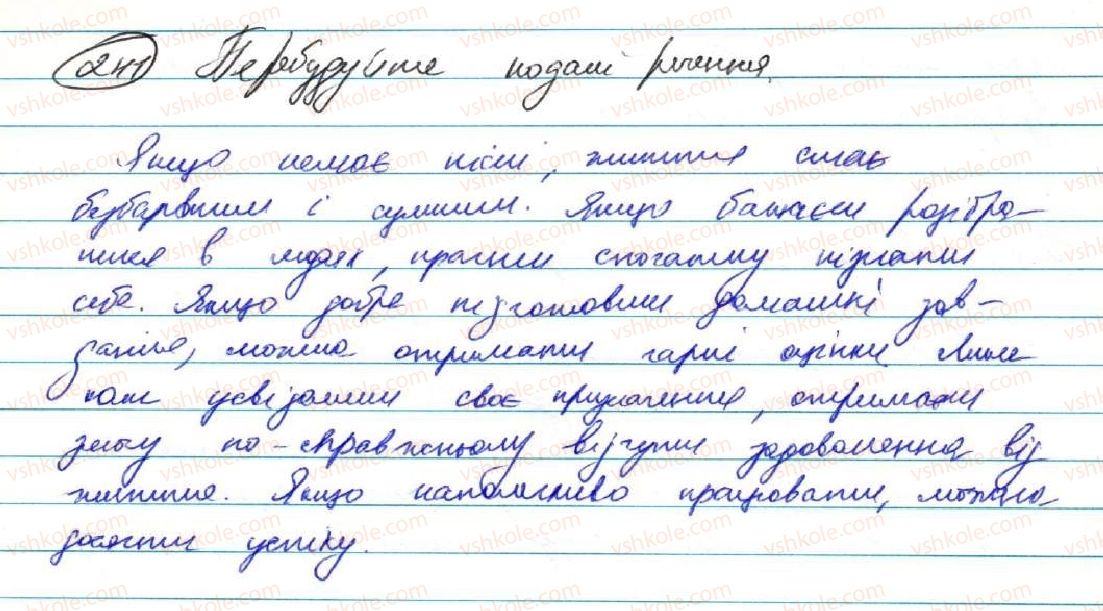 241 Перебудуйте подані речення.
Якщо немає пісні, життя стає
безбарвним і сумним. Якщо бажаєш розібра-
тися в людях, прагни спочатку пізнати
себе. Якщо добре підготовиш домашні зав-
дання, можна отримати гарні оцінки. Лише
коли усвідомиш своє призначення, отримаєш
змогу по-справжньому відчути задоволення від
життя. Якщо наполегливо працювати, можна
досягти успіху.
vshkole.com